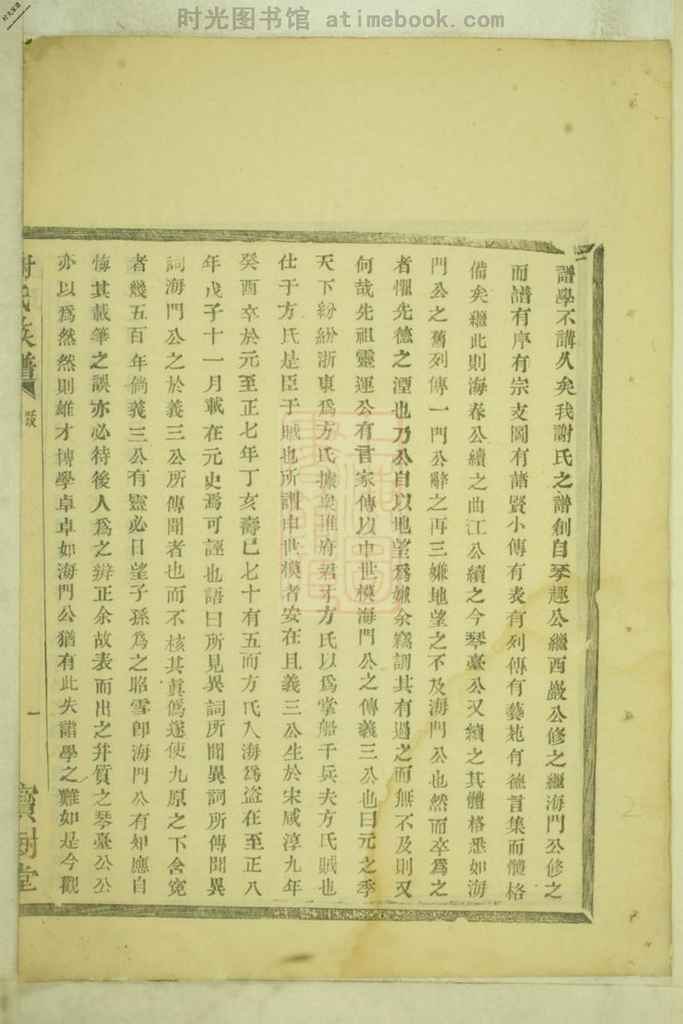 时光图书馆 atimebook.com
譜學不講久矣我謝氏之譜創自琴趣公繼西巖公修之繼海門公修之
而譜有序有宗支圖有諸賢小傳有表有列傳有藝苑有德言集而體格
備矣繼此則海春公續之曲江公續之今琴臺公又續之其體格悉如海
門公之舊列傳一門公辭之再三嫌地望之不及海門公也然而卒為之
者懼先德之湮也乃公自以地望為嫌余竊謂其有過之而無不及則又
何哉先祖靈運公有言家傳以申世模海門公之傳義三公也曰元之季
天下紛紛浙東為方氏據與進府君才方氏以為掌船千兵夫方氏賊也
仕于方氏是臣于賊也所謂申世模者安在且義三公生於宋咸淳九年
癸酉卒於元至正七年丁亥壽已七十有五而方氏入海為盜在至正八
年戊子十一月載在元史焉可誣也語曰所見異詞所聞異詞所傳聞異
詞海門公之於義三公所傳聞者也而不核其真偽遂使九原之下含寃
者幾五百年倘義三公有靈必日望子孫為之昭雪即海門公有知應自
悔其載筆之誤亦必待後人為之辨正余故表而出之并質之琴臺公公
亦以為然然則雄才博學卓卓如海門公猶有此失譜學之難如是今觀
謝氏族譜
跋
一
寶樹堂